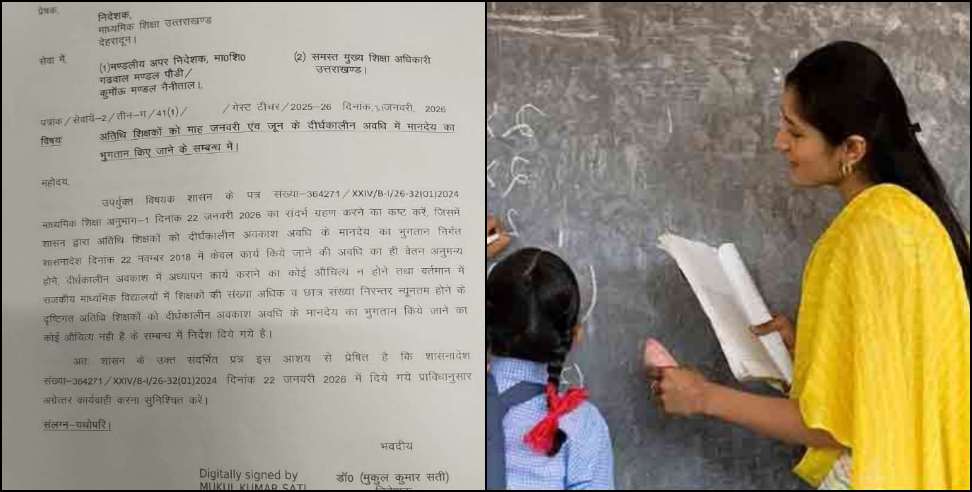 प्रेषक,
निदेशक,
माध्यमिक शिक्षा उत्तराखण्ड
देहरादून।
सेवा में,
(1)मण्डलीय अपर निदेशक, मा०शि०
गढवाल मण्डल पौडी/
कुमॉऊ मण्डल नैनीताल।
(2) समस्त मुख्य शिक्षा अधिकारी
उत्तराखण्ड।
पत्रांक/सेवायें-2/तीन-ग/41(1)/ /गेस्ट टीचर/2025-26 दिनांक, जनवरी, 2026
विषयः अतिथि शिक्षकों को माह जनवरी एंव जून के दीर्घकालीन अवधि में मानदेय का
भुगतान किए जाने के सम्बन्ध में।
महोदय,
उपर्युक्त विषयक शासन के पत्र संख्या-364271/XXIV/B-I/26-32(01)2024
माध्यमिक शिक्षा अनुभाग-1 दिनांक 22 जनवरी 2026 का संदर्भ ग्रहण करने का कष्ट करें, जिसमें
शासन द्वारा अतिथि शिक्षकों को दीर्घकालीन अवकाश अवधि के मानदेय का भुगतान निर्गत
शासनादेश दिनांक 22 नवम्बर 2018 में केवल कार्य किये जाने की अवधि का ही वेतन अनुमन्य
होने, दीर्घकालीन अवकाश में अध्यापन कार्य कराने का कोई औचित्य न होने तथा वर्तमान में
राजकीय माध्यमिक विद्यालयों में शिक्षकों की संख्या अधिक व छात्र संख्या निरन्तर न्यूनतम होने के
दृष्टिगत अतिथि शिक्षकों को दीर्घकालीन अवकाश अवधि के मानदेय का भुगतान किये जाने का
कोई औचित्य नही है के सम्बन्ध में निर्देश दिये गये है।
अतः शासन के उक्त संदर्भित प्रत्र इस आशय से प्रेषित है कि शासनादेश
संख्या-364271/XXIV/B-I/26-32(01)2024 दिनांक 22 जनवरी 2026 में दिये गये प्राविधानुसार
अग्रेत्तर कार्यवाही करना सुनिश्चित करें।
संलग्न-यथोपरि।
भवदीय
Digitally signed by
MUKUL KUMAR SATI
डॉ० (मुकुल कुमार सती)
निदेशक